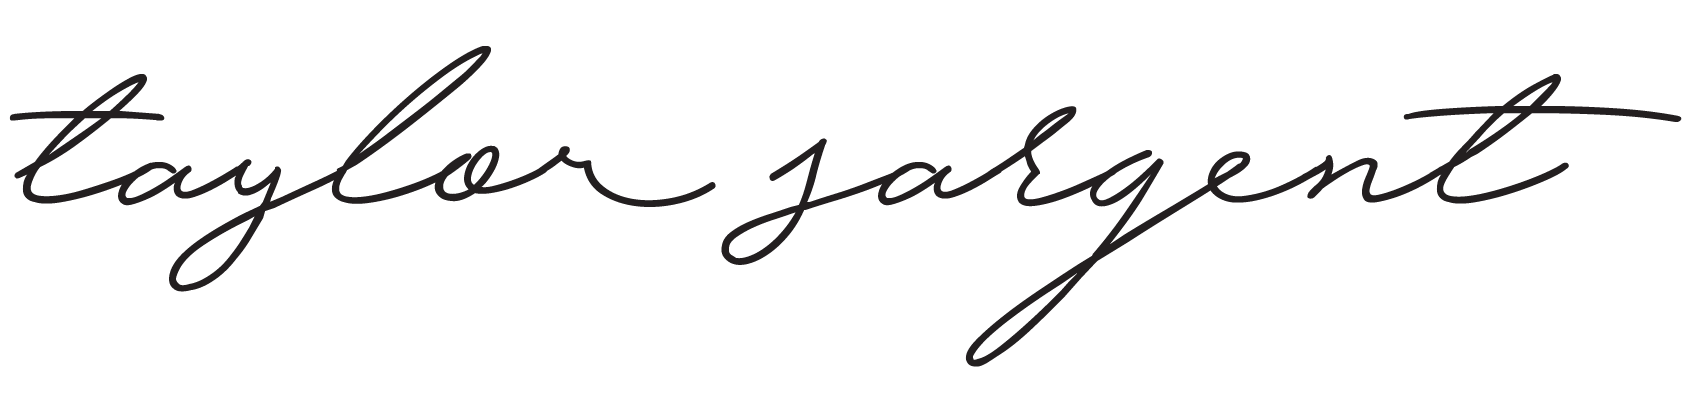 taylor sargent